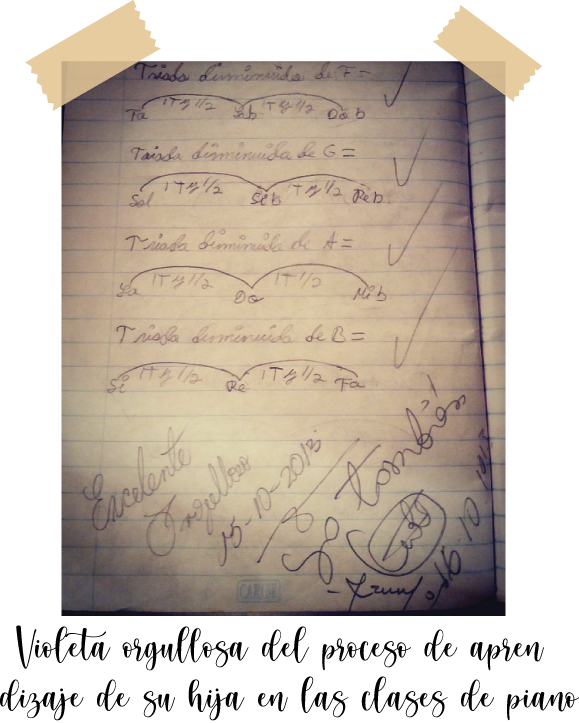 Triada diminuida de F =
Fa 1T y 1/2 Lab 1T y 1/2 Dob
Triada diminuida de G =
Sol 1T y 1/2 Sib 1T y 1/2 Reb
Triada diminuida de A =
La 1T y 1/2 Do 1T 1/2 Mib
Triada diminuida de B =
Si 1T y 1/2 Re 1T y 1/2 Fa
Excelente
Orgulloso
15-10-2013
Yo también
CARIBE
Violeta orgullosa del proceso de apren
dizaje de su hija en las clases de piano